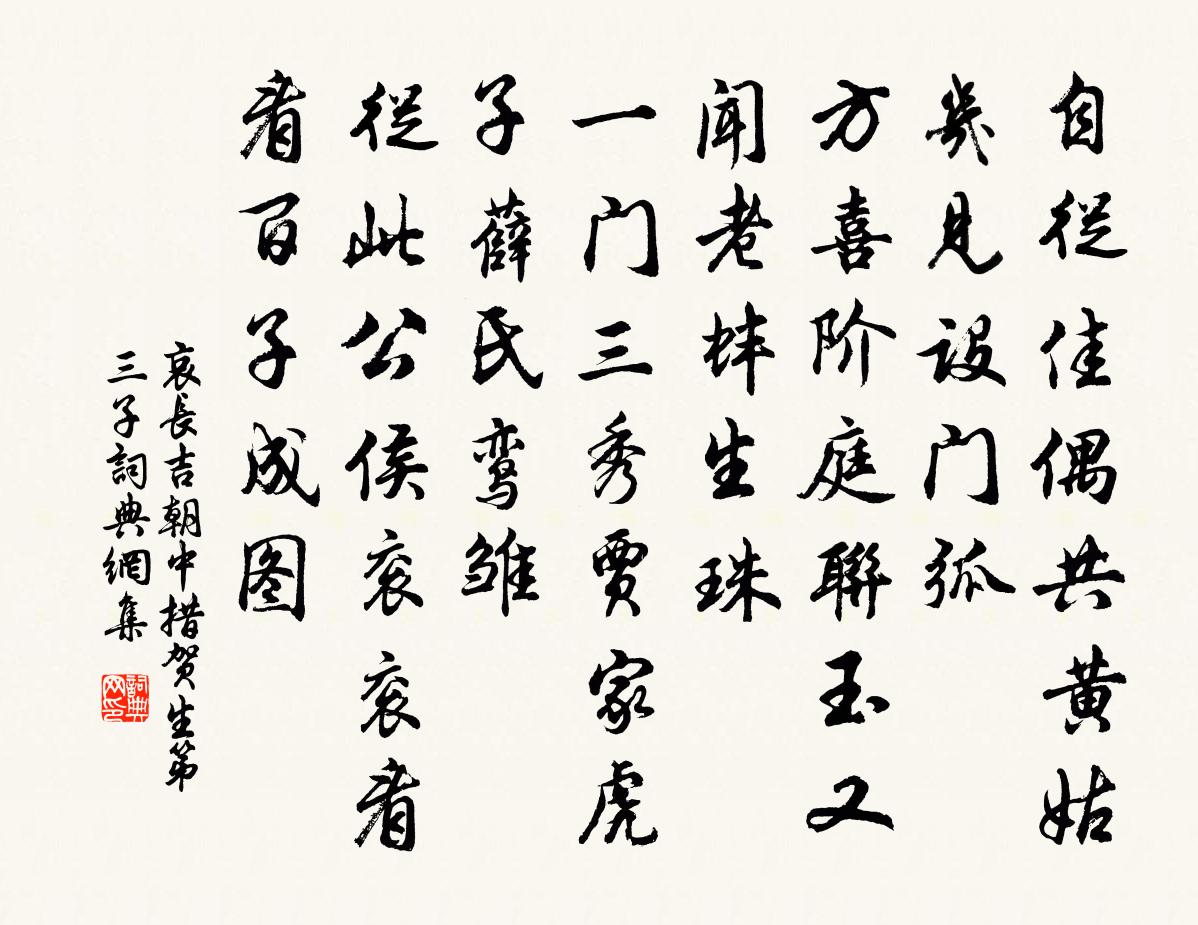 自從佳偶共黄姑
幾見設门弧
方喜阶庭聯玉又
闻老蚌生珠
一门三秀贾家虎
子薛氏鸾雏
從此公侯衮衮看
看百子成图
哀長吉朝中措贺生第
三子詞典網集
詞典网印